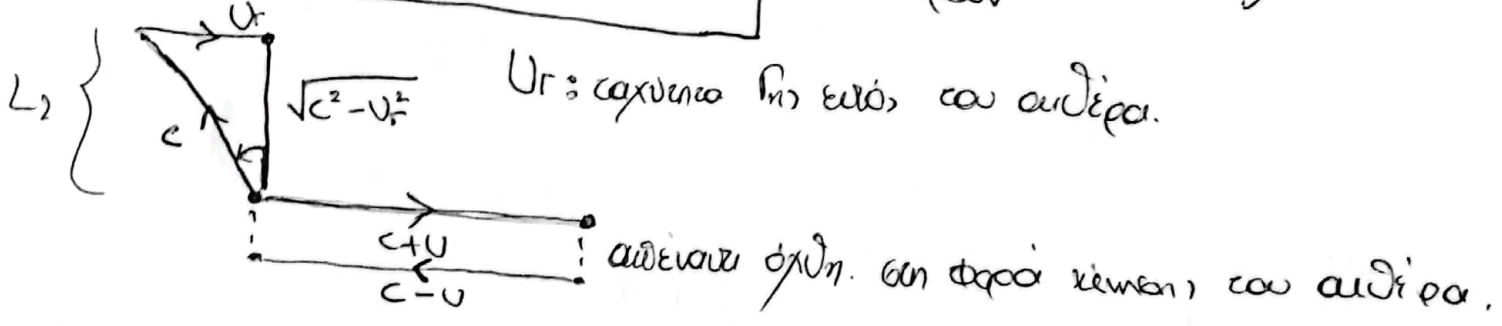 Uг
L₂
c
√(c² - Uг²)
Uг: ταχύτητα Γης εντός του αιθέρα.
c+U
c-U
απέναντι όχθη. στη φορά κίνησης του αιθέρα.